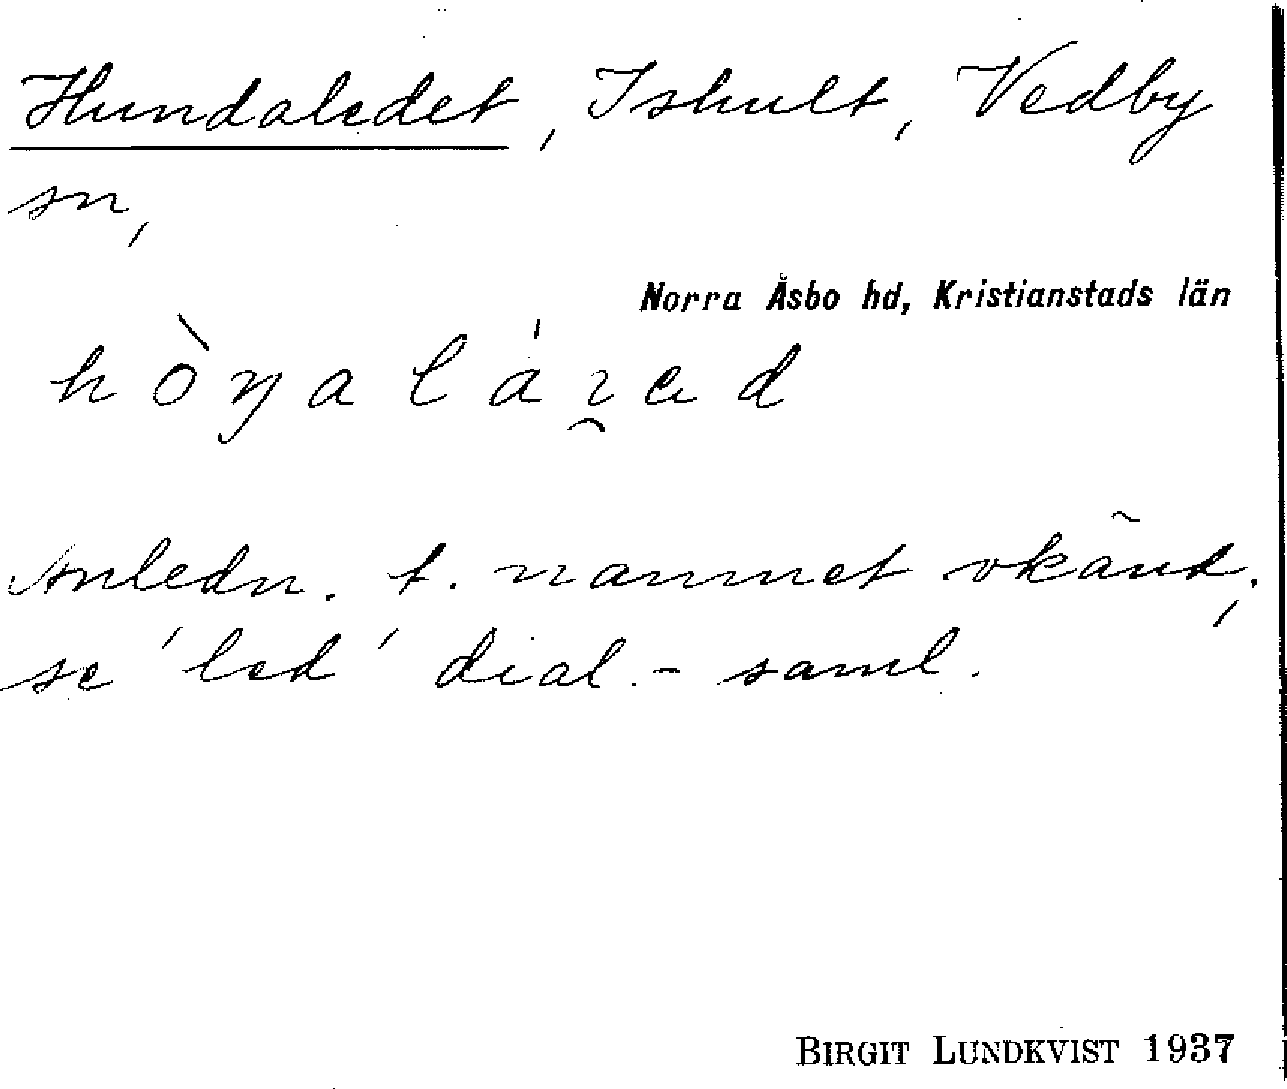 Hundaledet, Ishult, Vedby
sn,
Norra Åsbo hd, Kristianstads län
Anledn. t. namnet okänd;
se 'led' dial.-saml.
BIRGIT LUNDKVIST 1937